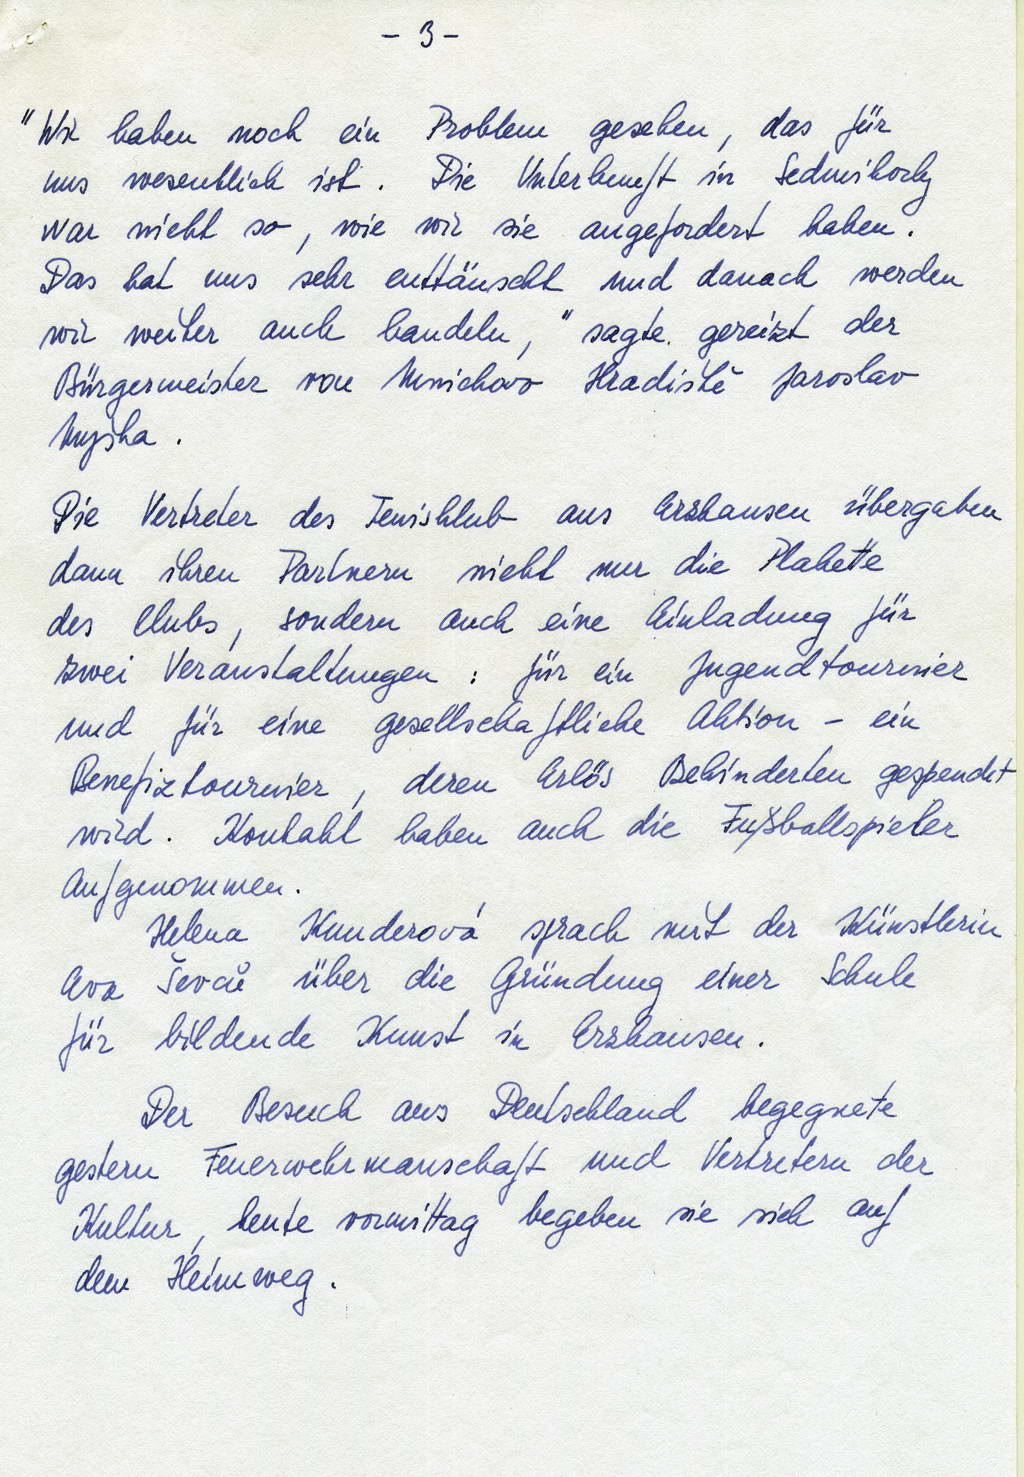 - 3 -
"Wir haben noch ein Problem gesehen, das für
uns wesentlich ist. Die Unterkunft in Sedmihorky
war nicht so, wie wir sie angefordert haben.
Das hat uns sehr enttäuscht und danach werden
wir weiter auch handeln," sagte gereizt der
Bürgermeister von Mnichovo Hradiště Jaroslav
Myška.
Die Vertreter des Tenisklub aus Erzhausen übergaben
dann ihren Partnern nicht nur die Plakette
des Clubs, sondern auch eine Einladung für
zwei Veranstaltungen: für ein Jugendtournier
und für eine gesellschaftliche Aktion - ein
Benefiztournier, deren Erlös Behinderten gespendet
wird. Kontakt haben auch die Fußballspieler
aufgenommen.
Helena Kunderová sprach mit der Künstlerin
Eva Ševců über die Gründung einer Schule
für bildende Kunst in Erzhausen.
Der Besuch aus Deutschland begegnete
gestern Feuerwehrmanschaft und Vertretern der
Kultur, heute vormittag begeben sie sich auf
dem Heimweg.